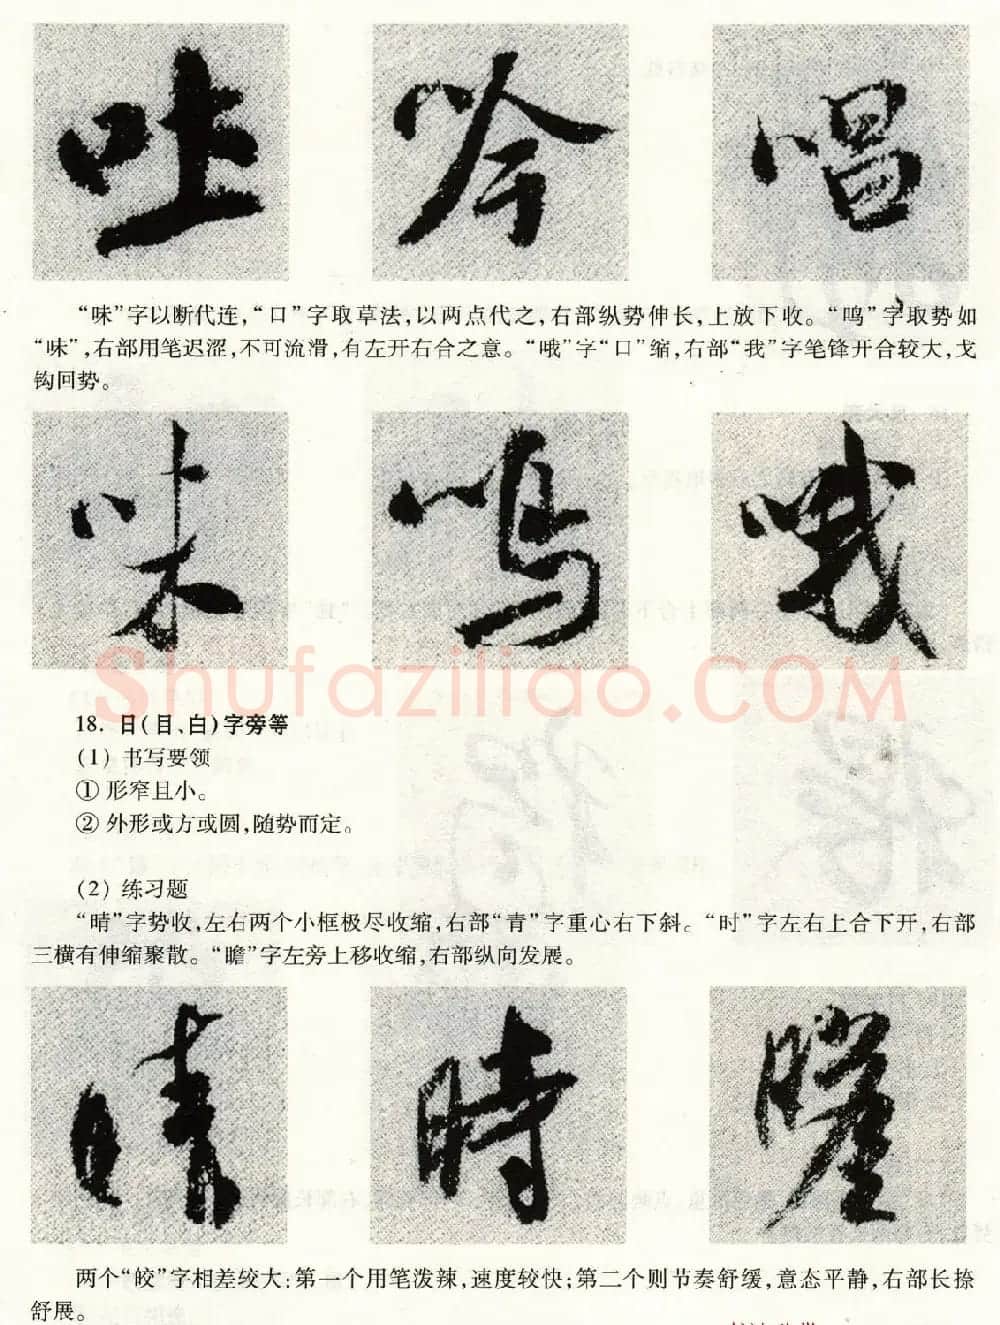 吐 吟 唱
“味”字以断代连,“口”字取草法,以两点代之,右部纵势伸长,上放下收。“鸣”字取势如
“味”,右部用笔迟涩,不可流滑,有左开右合之意。“哦”字“口”缩,右部“我”字笔锋开合较大,戈
钩回势。
味 鸣 哦
Shufaziliao.COM
18. 日(目、白)字旁等
(1) 书写要领
① 形窄且小。
② 外形或方或圆,随势而定。
(2) 练习题
“晴”字势收,左右两个小框极尽收缩,右部“青”字重心右下斜。“时”字左右上合下开,右部
三横有伸缩聚散。“瞻”字左旁上移收缩,右部纵向发展。
晴 時
两个“皎”字相差较大:第一个用笔泼辣,速度较快;第二个则节奏舒缓,意态平静,右部长捺
舒展。